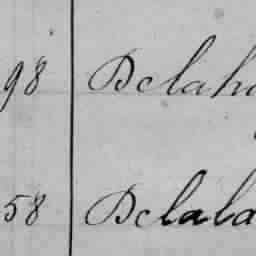 98 Delaha
58 Delala